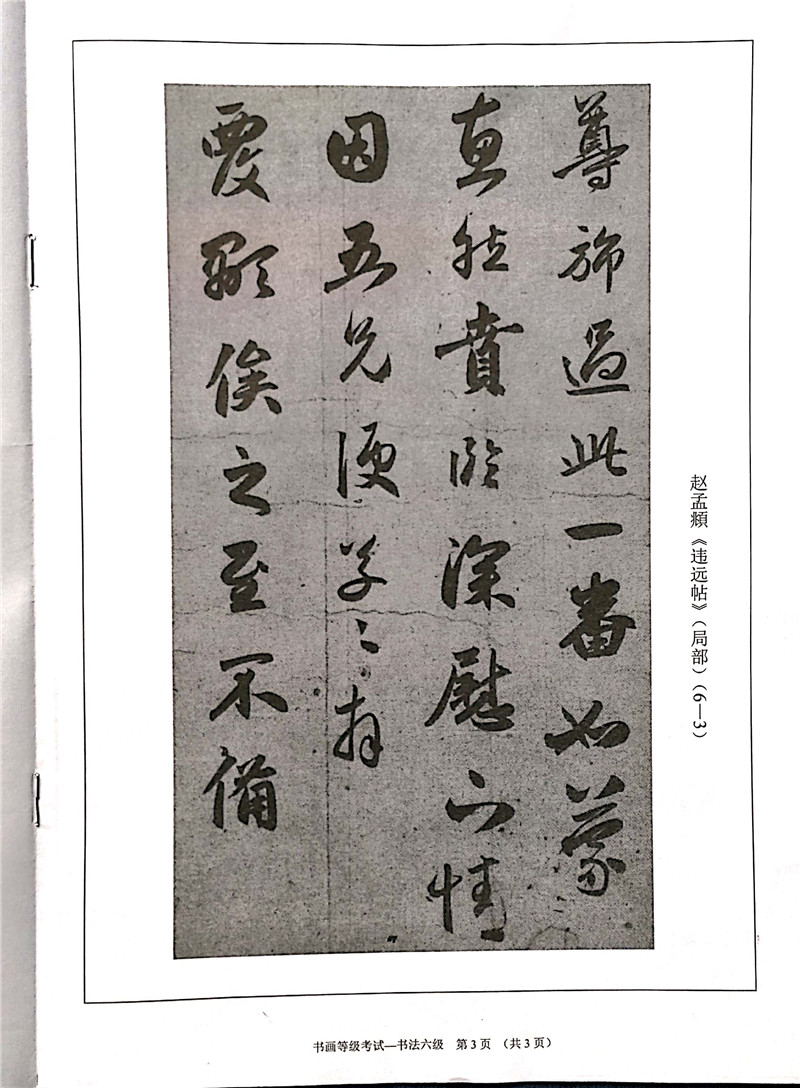 尊旆過此一番如蒙
惠然賁臨深慰下情
因五兄便草々拜
覆顒俟之至不備
赵孟頫《违远帖》(局部)(6—3)
书画等级考试—书法六级 第3页 (共3页)